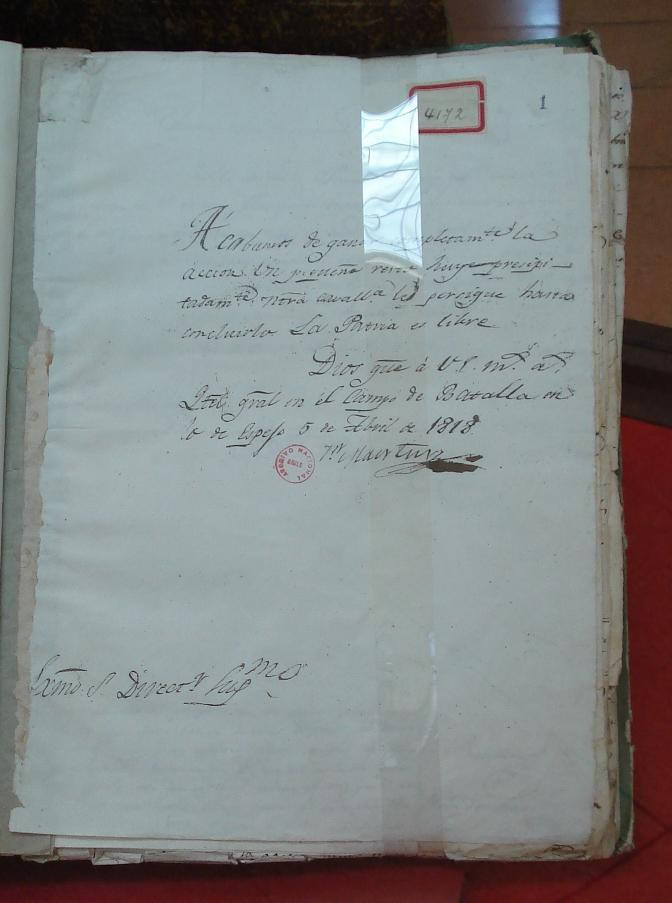 4172
1
Acabamos de ganar completam.te la
accion. Un pequeño resto huye precipi-
tadam.te ntrâ cavall.a lo persigue hasta
concluirlo. La Patria es libre
Dios gũe á V.E. m.s a.s
Qtel. gral en el Campo de Batalla en
lo de Espejo 5 de Abril de 1818
ARCHIVO NACIONAL
CHILE
Exmo. S. Direct.r Sup.mo